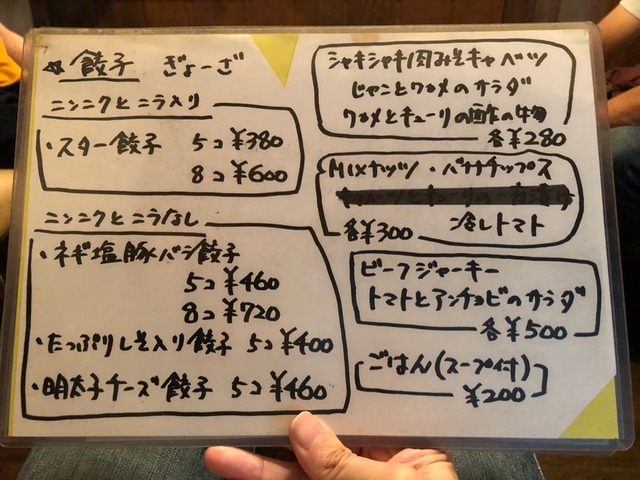 ☆餃子 ぎょーざ
ニンニクとニラ入り
・スター餃子 5コ ¥380
8コ ¥600
ニンニクとニラなし
・ネギ塩豚バラ餃子
5コ ¥460
8コ ¥720
・たっぷりしそ入り餃子 5コ ¥400
・明太子チーズ餃子 5コ ¥460
シャキシャキ肉みそキャベツ
じゃことワカメのサラダ
ワカメとキューリの酢の物
各¥280
MIXナッツ・バナナチップス
冷しトマト
各¥300
ビーフジャーキー
トマトとアンチョビのサラダ
各¥500
ごはん(スープ付)
¥200